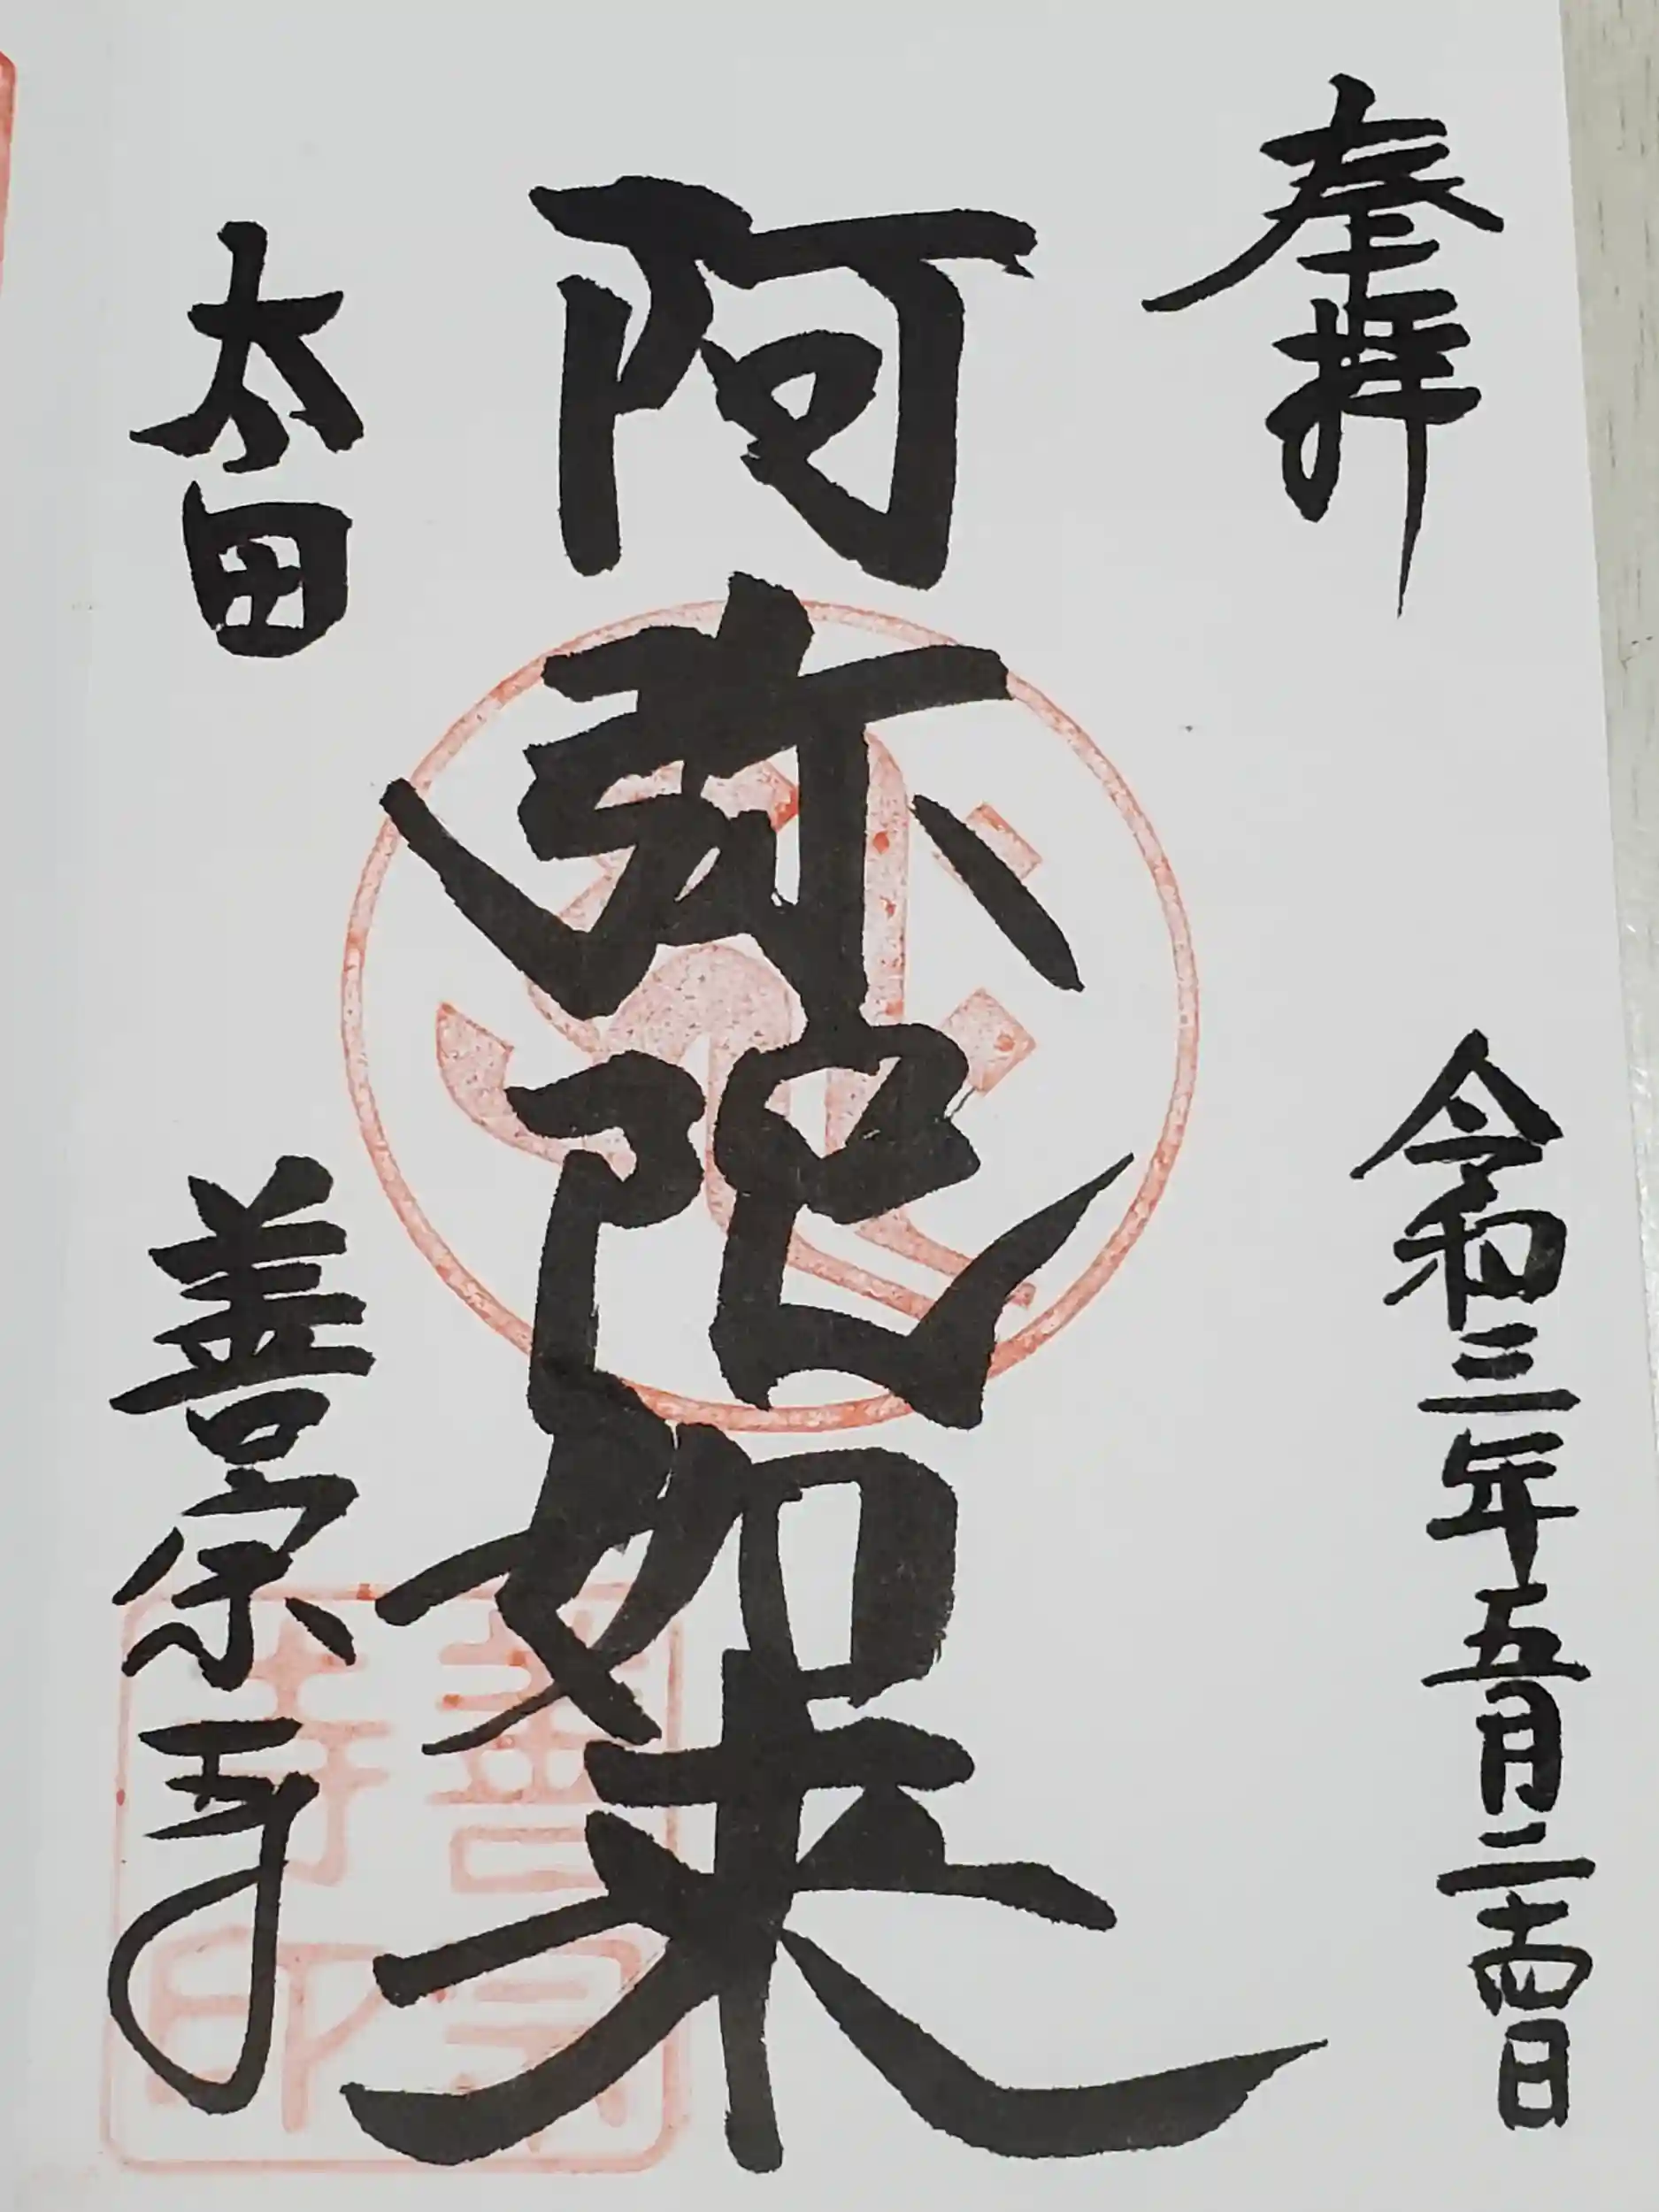 奉拝
令和三年五月二十四日
阿弥陀如来
太田
善宗寺
善宗寺印